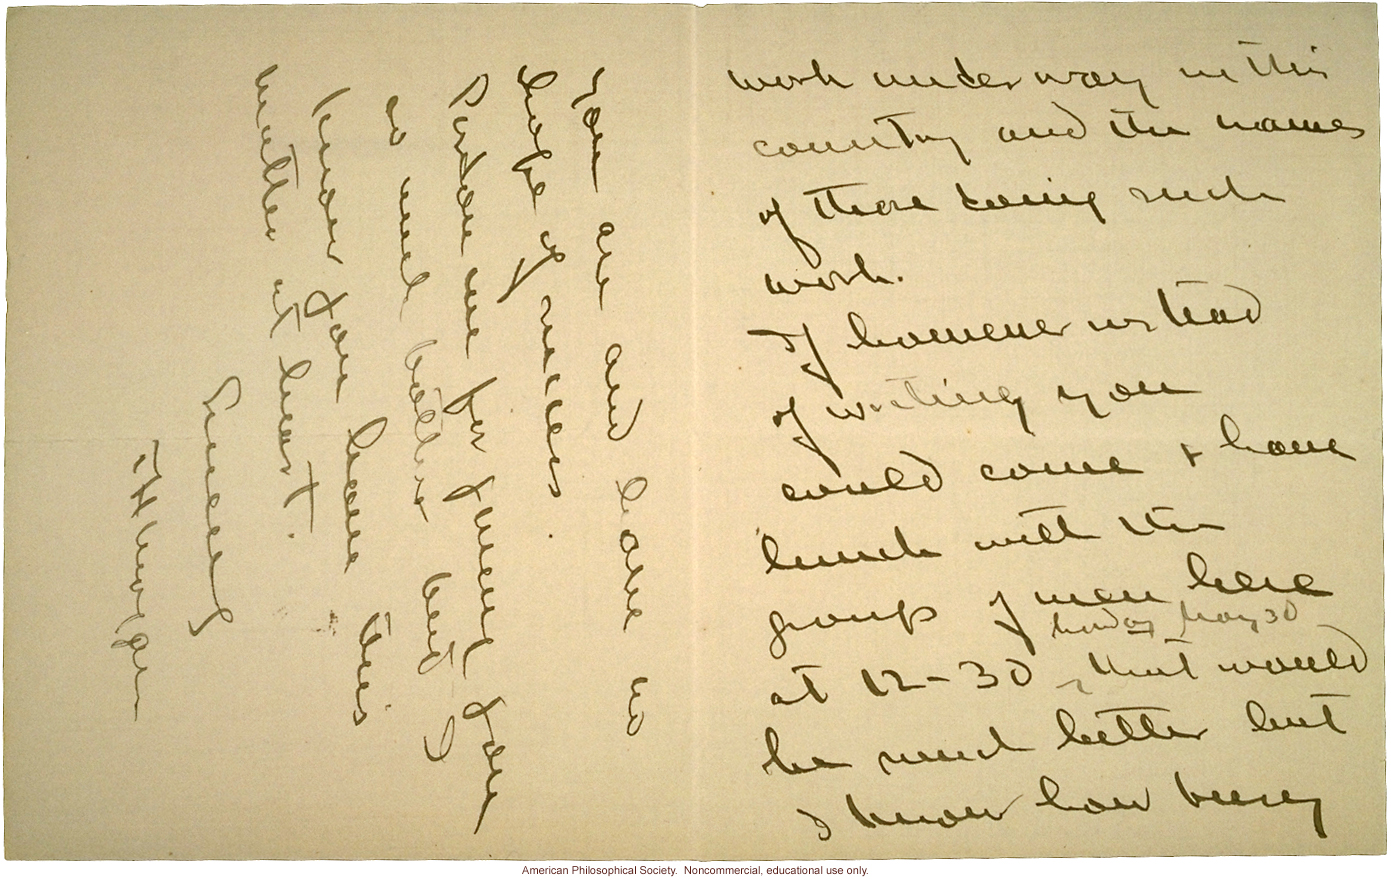 work under way in this
country and the names
of those doing such
work.
If however instead
of writing you
could come & have
lunch with the
group of men here
at 12-30 Monday May 30 that would
be much better but
I know how busy
you are and have no
hope of success.
Pardon me for giving you
so much bother but I
know you have this
matter at heart.
Sincerely
T H Morgan
American Philosophical Society. Noncommercial, educational use only.